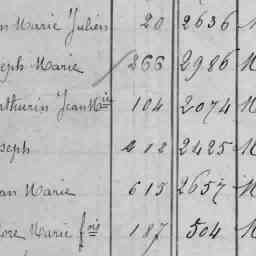 n Marie Julien 20 2636
eph Marie 266 2986 M
athurin Jean Mie 104 2074 M
seph 212 2425 M
an Marie 615 2657 M
ore Marie fois 187 504 M